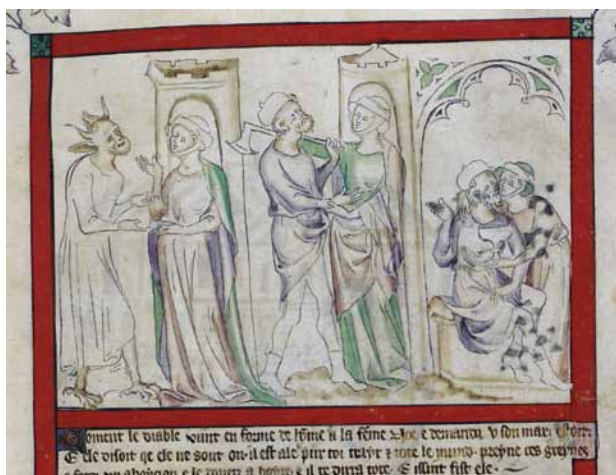 Coment le diable vint en forme de home a la feme Noe e demanda v son mari
E ele disoit qe ele ne sout ou il est ale pur toi trayr e tote le mund preyne ces greynes
e il te dirra tote E issint fist ele